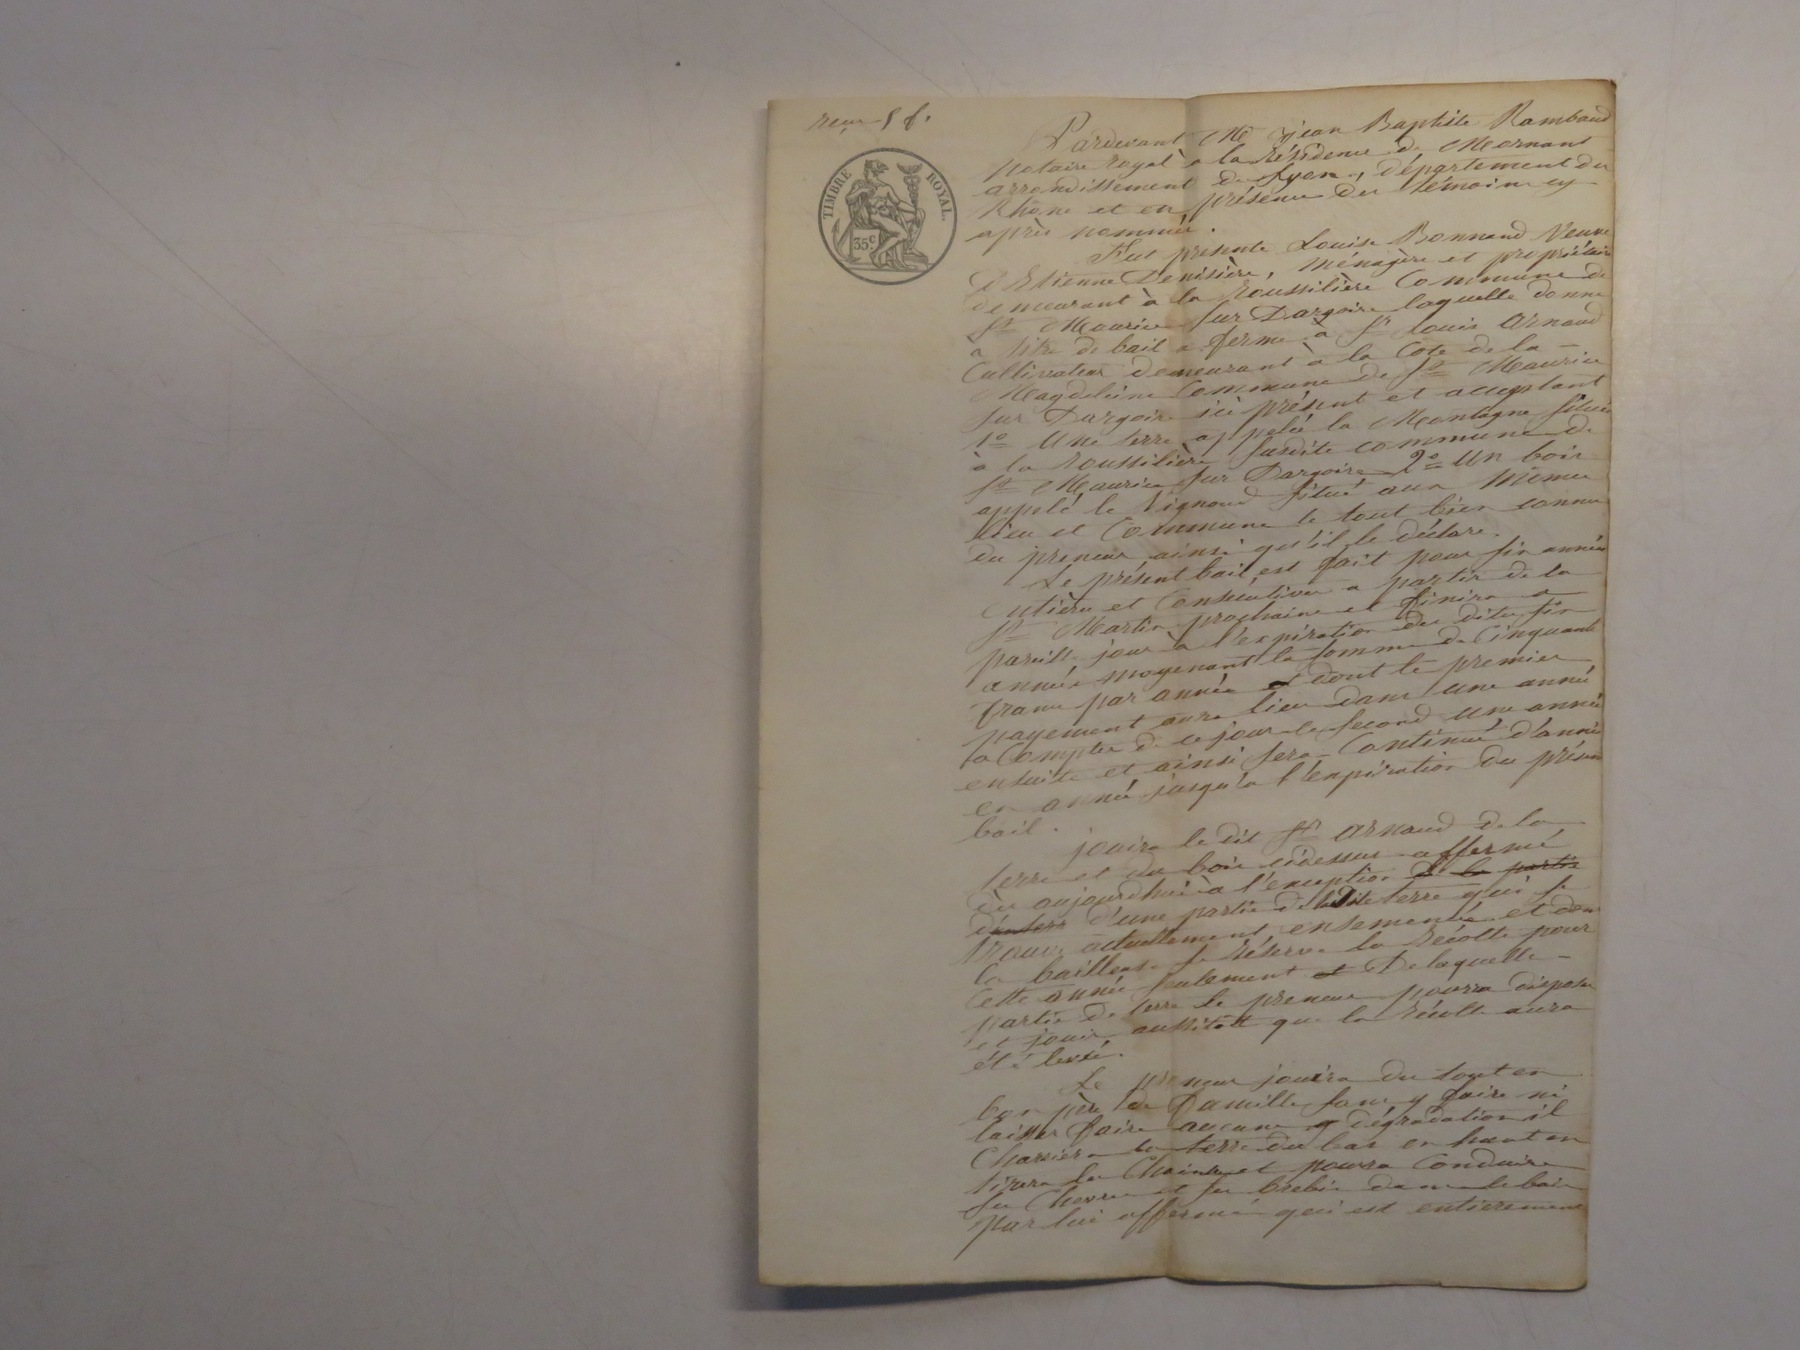 reçu 5 f.
TIMBRE ROYAL.
35 c.
Pardevant Me jean Baptiste Rambaud
Notaire royal à la résidence de Mornant
arrondissement de Lyon, département du
Rhône et en présence des témoins cy
après nommés.
Fut présente Louise Bonnand Veuve
d'Etienne Denisière, ménagère et propriétaire
demeurant à la roussilière Commune de
St Maurice sur Dargoire laquelle donne
a titre de bail a ferme à Sr louis Arnaud
Cultivateur demeurant à la Cote de la
Magdeleine Commune de St Maurice
sur Dargoire ici présent et acceptant
1o Une terre appelée la Montagne située
à la roussilière susdite commune de
St Maurice sur Dargoire 2o Un bois
appelé le Vignaud situé aux mêmes
lieu et Commune le tout bien connu
du preneur ainsi qu'il le déclare.
Le présent bail est fait pour six années
entières et Consécutives a partir de la
St Martin prochaine et finira a
pareille jour à l'expiration des dites six
années moyenant la somme de Cinquante
francs par année et dont le premier
payement aura lieu dans une année
a Compter de ce jour le second une année
ensuite et ainsi sera Continué d'année
en année jusqu'a l'expiration du présent
bail.
jouira le dit Sr Arnaud de la
terre et du bois cidessus affermé
dès aujourdhui à l'exception de la partie
d'une partie de ladite terre qui se
trouve actuellement ensemencée et dont
la bailleuse se réserve la récolte pour
Cette année seulement et De laquelle
partie de terre le preneur pourra disposer
et jouir aussitôt que la récolte aura
été levée.
Le preneur jouira du tout en
bon père de Famille sans y faire ni
laisser faire aucune dégradation il
la terre du bas en haut en
tirera la et pourra Conduire
ses Chevres et ses brebis dans le bois
par lui affermé qui est entierement